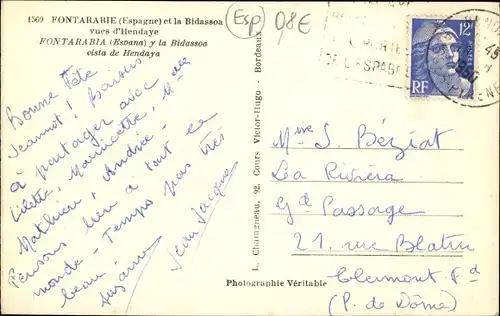 1569 FONTARABIE (Espagne) et la Bidassoa
vues d'Hendaye
FONTARABIA (Espana) y la Bidassoa
vista de Hendaya
(Esp) 98€
DE L'ESPAG
12F
RF
Bonne fête
Jeannot ! Baisers
à partager avec
Lilette, Mauricette, Melle
Mathieu, Andrée -
Pensons bien à tout ce
monde - Temps pas très
beau.
Suzanne
Jean Jacques
L. Chatagneau, 92, Cours Victor-Hugo - Bordeaux
Photographie Véritable
Mme S. Béziat
La Riviéra
Gd Passage
21, rue Blatin
Clermont Fd
(P. de Dôme)